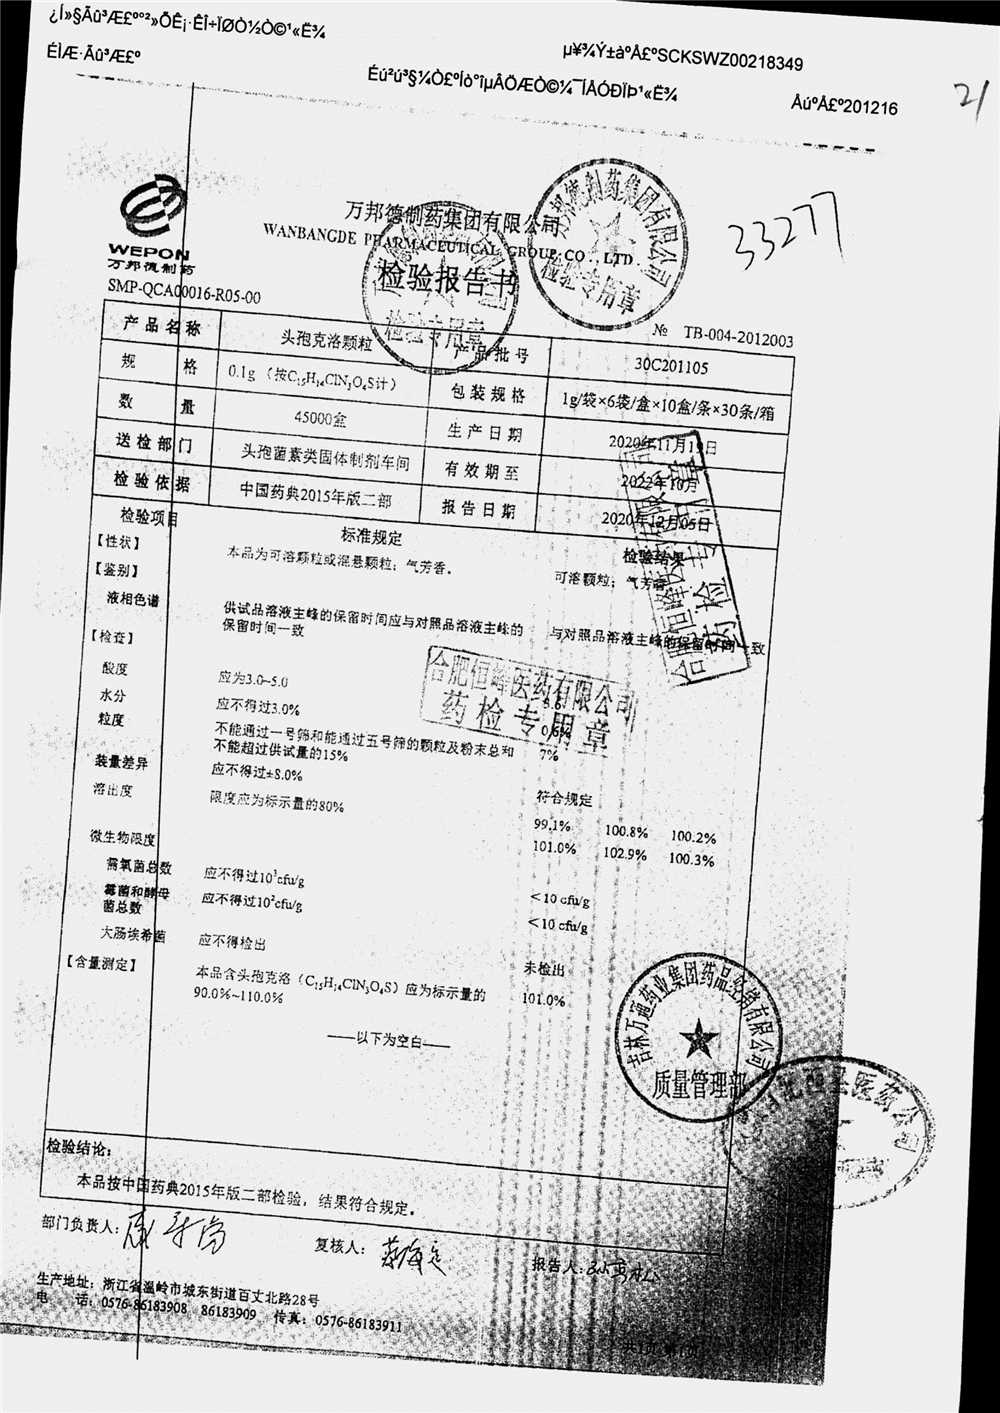 ¿Í»§Ãû³Æ£º°²»ÕÊ¡·ÊÎ÷ÏØÒ½Ò©¹«Ë¾
µ¥¾Ý±àºÅ£ºSCKSWZ00218349
ÉÌÆ·Ãû³Æ£º
Éú²ú³§¼Ò£ºÍò°îµÂÖÆÒ©¼¯ÍÅÓÐÏÞ¹«Ë¾
ÅúºÅ£º201216
21
33277
WEPON
万邦德制药
万邦德制药集团有限公司
WANBANGDE PHARMACEUTICAL GROUP CO., LTD.
检验报告书
检验专用章
万邦德制药集团有限公司
检验专用章
SMP-QCA00016-R05-00
№ TB-004-2012003
产品名称 头孢克洛颗粒 产品批号 30C201105
规格 0.1g（按C₁₅H₁₄ClN₃O₄S计） 包装规格 1g/袋×6袋/盒×10盒/条×30条/箱
数量 45000盒 生产日期 2020年11月 日
送检部门 头孢菌素类固体制剂车间 有效期至 2022年10月
检验依据 中国药典2015年版二部 报告日期 2020年12月05日
检验项目 标准规定 检验结果
【性状】 本品为可溶颗粒或混悬颗粒；气芳香。 可溶颗粒；气芳香
【鉴别】
液相色谱 供试品溶液主峰的保留时间应与对照品溶液主峰的 与对照品溶液主峰的保留时间一致
保留时间一致
【检查】
酸度 应为3.0~5.0
水分 应不得过3.0% 0.6%
粒度 不能通过一号筛和能通过五号筛的颗粒及粉末总和 7%
不能超过供试量的15%
装量差异 应不得过±8.0% 符合规定
溶出度 限度应为标示量的80% 99.1% 100.8% 100.2%
101.0% 102.9% 100.3%
微生物限度
需氧菌总数 应不得过10³cfu/g <10 cfu/g
霉菌和酵母 应不得过10²cfu/g <10 cfu/g
菌总数
大肠埃希菌 应不得检出 未检出
【含量测定】 本品含头孢克洛（C₁₅H₁₄ClN₃O₄S）应为标示量的 101.0%
90.0%~110.0%
——以下为空白——
合肥恒峰医药有限公司
药检专用章
合肥恒峰医药有限公司
药检专用章
吉林万通药业集团药品经销有限公司
质量管理部
检验结论：
本品按中国药典2015年版二部检验，结果符合规定。
部门负责人：
复核人：
报告人：
生产地址：浙江省温岭市城东街道百丈北路28号
电 话：0576-86183908 86183909 传真：0576-86183911
共1页 第1页